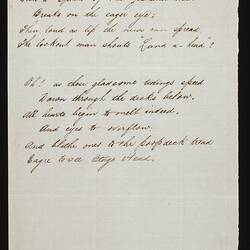 Breaks on the eager eye;
Then loud as lip the news can spread
The lookout man shouts "Land a-head"!
Oh! as those gladsome tidings speed
Down through the decks below.
All hearts began to melt indeed,
And eyes to overflow.
And blithe ones to the poop deck tread
Eagre to see Otago Head.